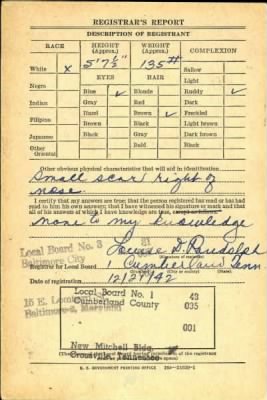 REGISTRAR'S REPORT
DESCRIPTION OF REGISTRANT
RACE HEIGHT (Approx.) WEIGHT (Approx.) COMPLEXION
White x 5'7½" 135# Sallow
EYES HAIR Light
Negro Blue ✓ Blonde Ruddy ✓
Indian Gray Red Dark
Filipino Hazel Brown ✓ Freckled
Brown Black Light brown
Japanese Black Gray Dark brown
Bald Black
Other obvious physical characteristics that will aid in identification
Small scar right of
nose
I certify that my answers are true; that the person registered has read or has had
read to him his own answers; that I have witnessed his signature or mark and that
all of his answers of which I have knowledge are true, except as follows:
none to my knowledge
Louise D. Rudolph
(Signature of registrar)
Registrar for Local Board 1 Cumberland Tenn
Date of registration 12/27/42
Local Board No. 3
Baltimore City
Local Board No. 1 43
Cumberland County 035
001
New Mitchell Bldg.
Crossville, Tennessee
U. S. GOVERNMENT PRINTING OFFICE